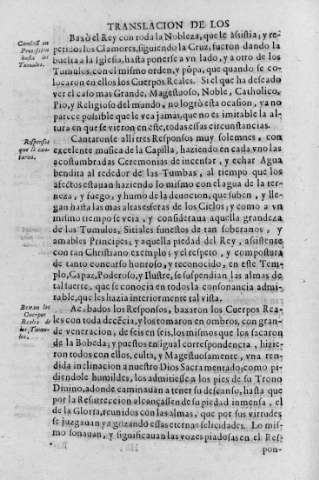 TRANSLACION DE LOS
Baxò el Rey con toda la Nobleza, que le assistia; y re-
petido los Clamores, siguiendo la Cruz, fueron dando la
buelta a la Iglesia, hasta ponerse a vn lado, y a otro de los
Tumulos, con el mismo orden, y põpa, que quando se co-
locaron en ellos los Cuerpos Reales. Si el que ha deseado
ver el caso mas Grande, Magestuoso, Noble, Catholico,
Pio, y Religioso del mundo, no logrò esta ocasion, ya no
parece possible que le vea jamas, que no es imitable la al-
tura en que se vieron en este, todas essas circunstancias.
Conduce en
Procession
hasta los
Tumulos.
Cantaronse alli tres Responsos muy solemnes, con
excelente musica de la Capilla, haziendo en cada vno las
acostumbradas Ceremonias de incensar, y echar Agua
bendita al rededor de las Tumbas, al tiempo que los
afectos estauan haziendo lo mismo con el agua de la ter-
neza, y fuego, y humo de la deuocion, que suben, y lle-
gan hasta las mas altas esferas de los Cielos; y como a vn
mismo tiempo se veia, y consideraua aquella grandeza
de los Tumulos, Sitiales funestos de tan soberanos, y
amables Principes; y aquella piedad del Rey, assistente
con tan Christiano exemplo; y el respeto, y compostura
de tanto concurso honroso, y reconocido, en este Tem-
plo, Capaz, Poderoso, y Ilustre, se suspendian las almas de
tal suerte, que se conocia en todos la consonancia admi-
table, que les hazia interiormente tal vista.
Responsos
que se can-
taron.
Acabados los Responsos, baxaron los Cuerpos Rea-
les con toda decēcia, y los tomaron en ombros, con gran-
de veneracion, de seis en seis, los mismos que los sacaron
de la Bobeda; y puestos en igual correspondencia, hizie-
ron todos con ellos, culta, y Magestuosamente, vna ren-
dida inclinacion a nuestro Dios Sacramentado, como pi-
diendole humildes, los admitiesse a los pies de su Trono
Diuino, adonde caminauan a tener su descanso, hasta que
por la Resurreccion alcançassen de su piedad inmensa, el
de la Gloria, reunidos con las almas, que por sus virtudes
se juzgauan ya gozando essas eternas felicidades. Lo mis-
mo sonauan, y significauan las vozes piadosas en el Res-
Baxan los
Cuerpos
Reales de
los Tumu-
los.
pon-